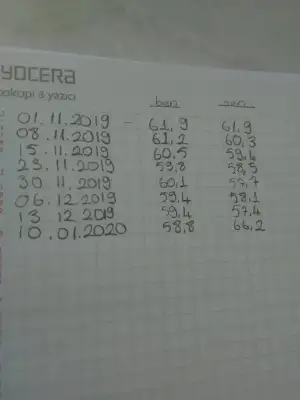 YOCERA
okopi & yazıcı
ben sen
01.11.2019 - 61,9 61,9
08.11.2019 61,2 60,3
15.11.2019 60,5 59,4
23.11.2019 59,8 58,5
30.11.2019 60,1 57,7
06.12.2019 59,4 58,1
13.12.2019 59,4 57,4
10.01.2020 58,8 66,2